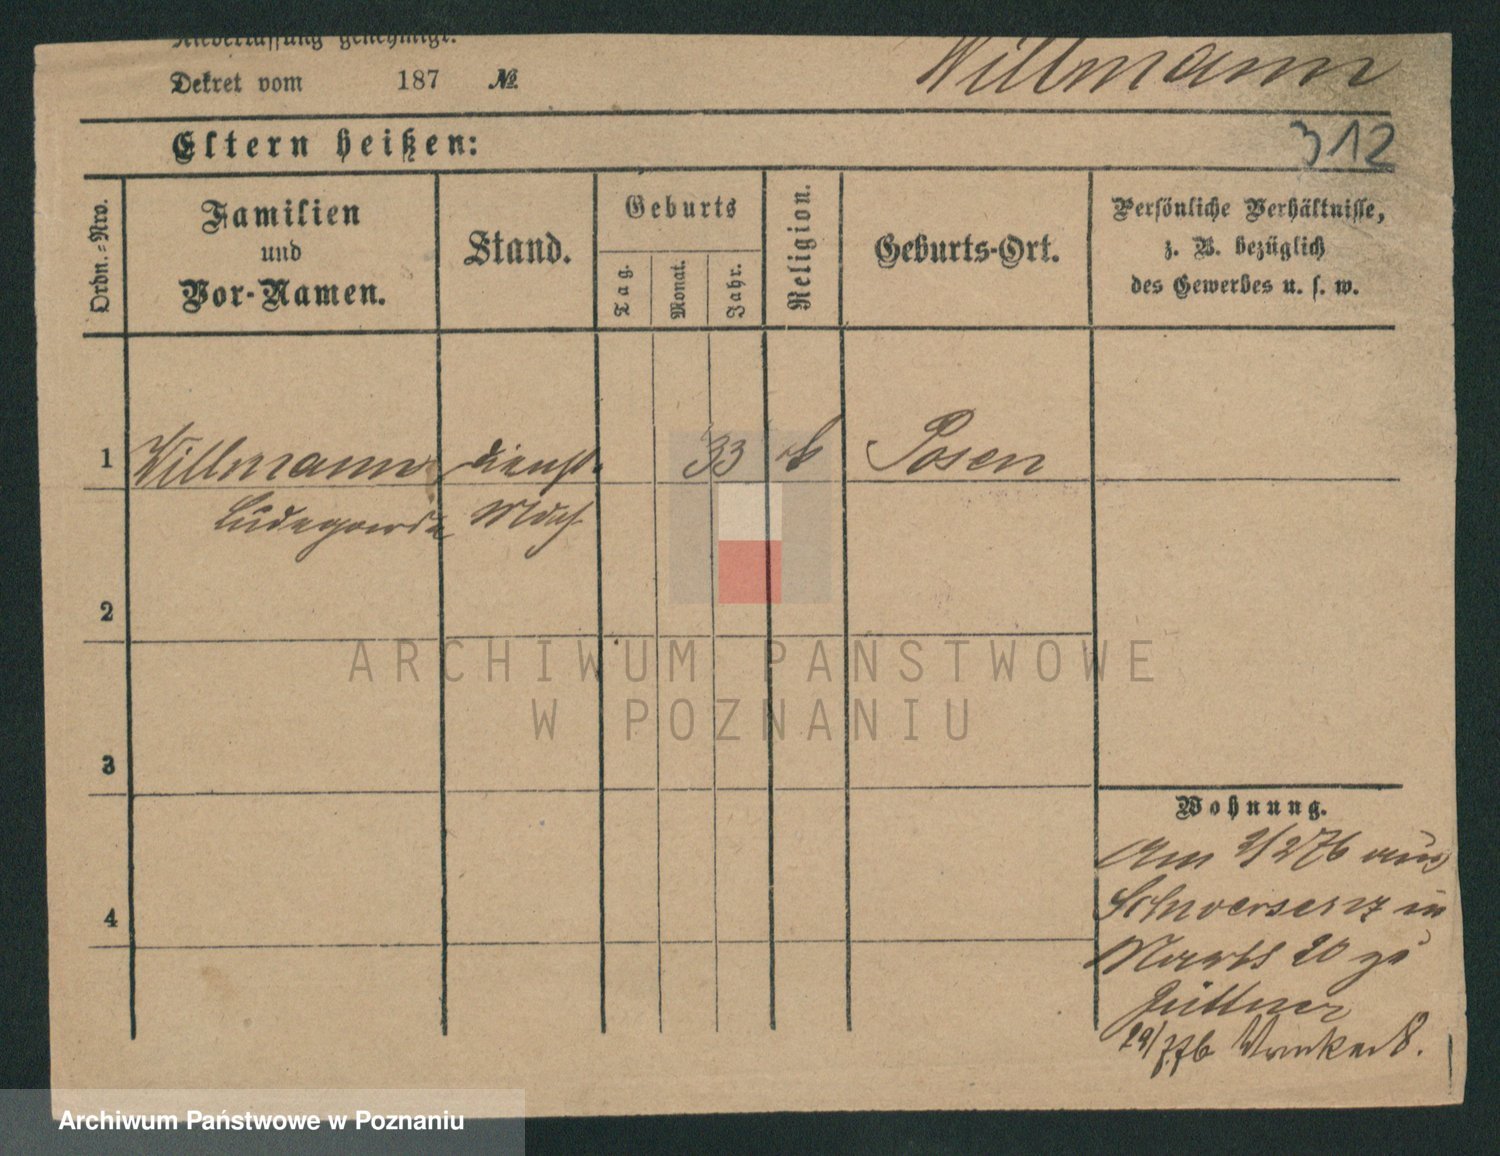 Niederlassung genehmigt.
Willmann
Dekret vom 187 №
312
Eltern heißen:
Ordn.-Nro.
Familien
und
Vor-Namen.
Stand.
Geburts
Tag.
Monat.
Jahr.
Religion.
Geburts-Ort.
Persönliche Verhältnisse,
z. B. bezüglich
des Gewerbes u. s. w.
1 Willmann Dienst- 33 k Posen
2
3
4
Wohnung.
Am 2/2 76 aus
Schwersenz in
Markt 20 zu
Jüttner
29/7.76
ARCHIWUM PAŃSTWOWE
W POZNANIU
Archiwum Państwowe w Poznaniu